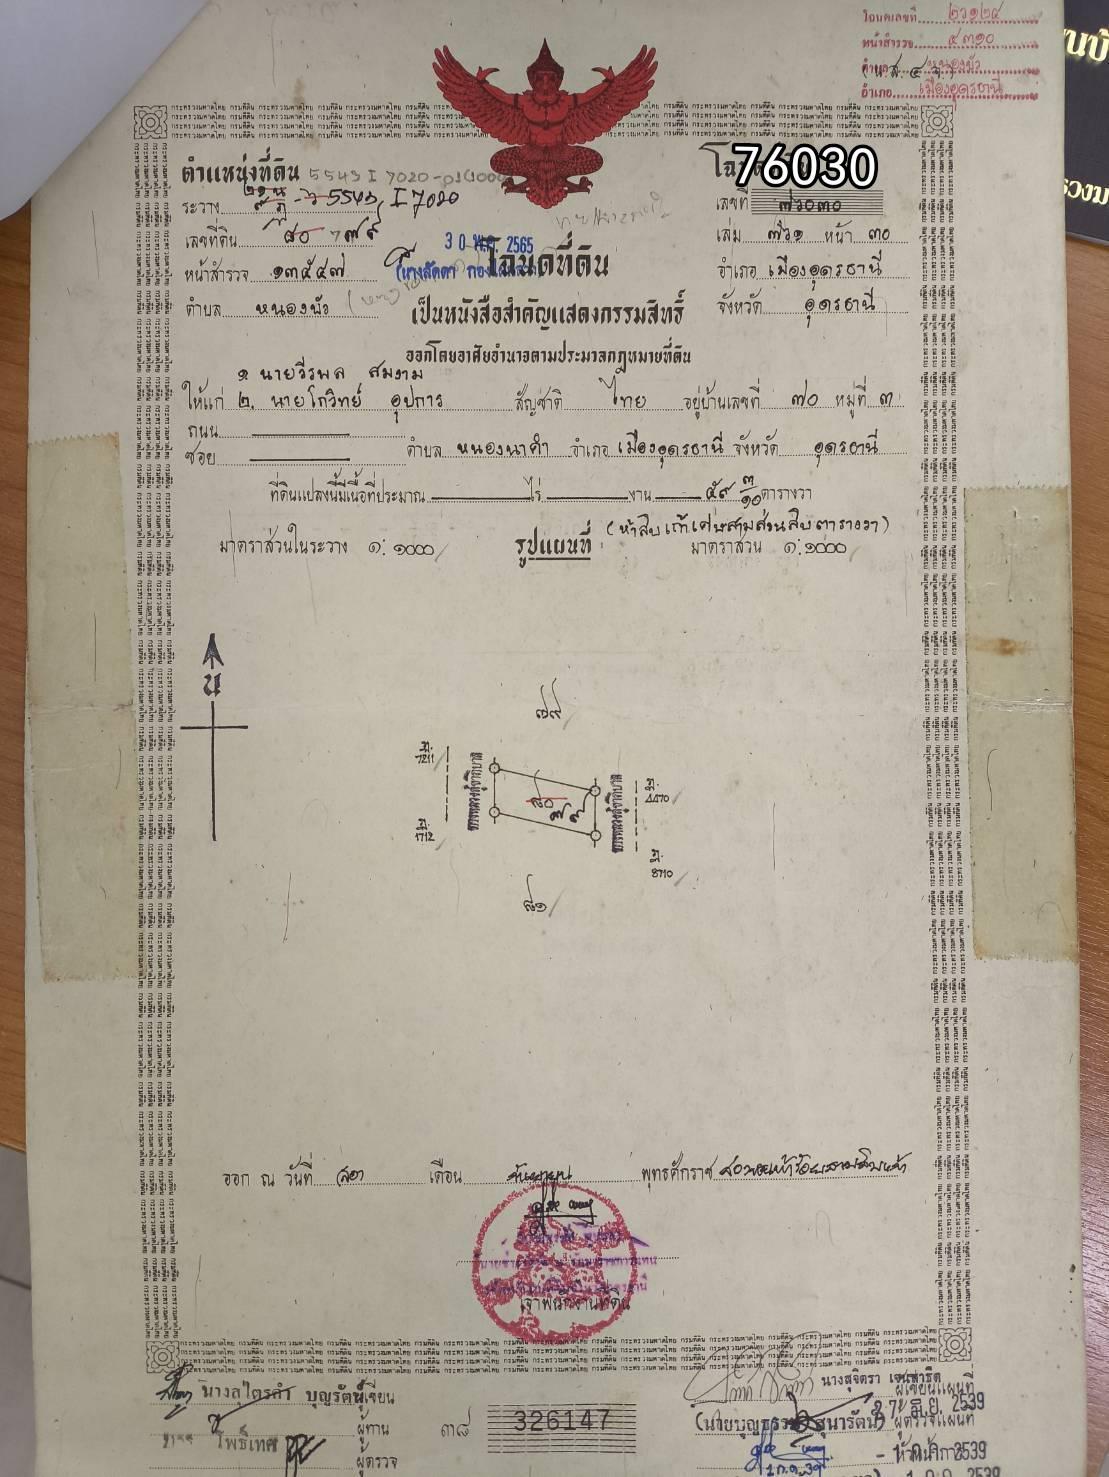 โฉนดเลขที่ ๒๖๑๒๔
หน้าสำรวจ ๔๓๑๐
ตำบล หนองบัว
อำเภอ เมืองอุดรธานี
ตำแหน่งที่ดิน 5543 I 7020
76030
ระวาง 5543 I 7020
เลขที่ ๗๖๐๓๐
เลขที่ดิน ๘๐ ๗๗๙
เล่ม ๗๖๑ หน้า ๓๐
30 พ.ค. 2565
โฉนดที่ดิน
หน้าสำรวจ ๑๓๕๔๗
อำเภอ เมืองอุดรธานี
ตำบล หนองบัว
เป็นหนังสือสำคัญแสดงกรรมสิทธิ์
จังหวัด อุดรธานี
ออกโดยอาศัยอำนาจตามประมวลกฎหมายที่ดิน
๑ นายวีรพล สมงาม
ให้แก่ ๒. นายโกวิทย์ อุปการ สัญชาติ ไทย อยู่บ้านเลขที่ ๗๐ หมู่ที่ ๓
ถนน
ซอย ตำบล หนองนาคำ อำเภอ เมืองอุดรธานี จังหวัด อุดรธานี
ที่ดินแปลงนี้มีเนื้อที่ประมาณ ไร่ งาน ๕๙ ๓/๑๐ ตารางวา
(ห้าสิบเก้าเศษสามส่วนสิบตารางวา)
มาตราส่วนในระวาง ๑:๑๐๐๐ รูปแผนที่ มาตราส่วน ๑:๑๐๐๐
น
๗๙
๘๐
๘๑
ออก ณ วันที่ สอง เดือน กันยายน พุทธศักราช สองพันห้าร้อยสามสิบเก้า
เจ้าพนักงานที่ดิน
นางสุจิตรา เจนสาริต
ผู้เขียนแผนที่
นางลไตรคำ บุญรัตน์ ผู้เขียน
27 มิ.ย. 2539
(นายบุญธรรม สุนารัตน์) ผู้ตรวจแผนที่
ผู้ทาน
๓๘
326147
โพธิ์เทศ
ผู้ตรวจ
- 1 ก.ค. 2539